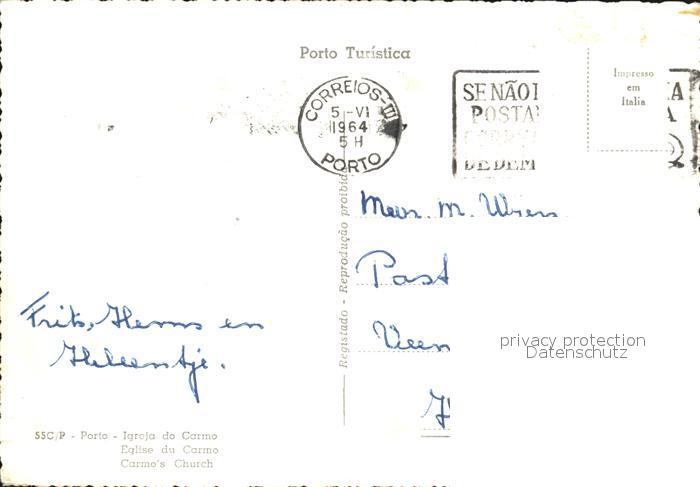 Porto Turística
Impresso
em
Italia
CORREIOS-III
5-VI
1964
5 H
PORTO
SE NÃO
POSTA
DE DEM
Registado - Reprodução proibida
Mevr. M.
Past
Veen
Frits, Hemms en
Heleentje.
privacy protection
Datenschutz
55C/P - Porto - Igreja do Carmo
Eglise du Carmo
Carmo's Church